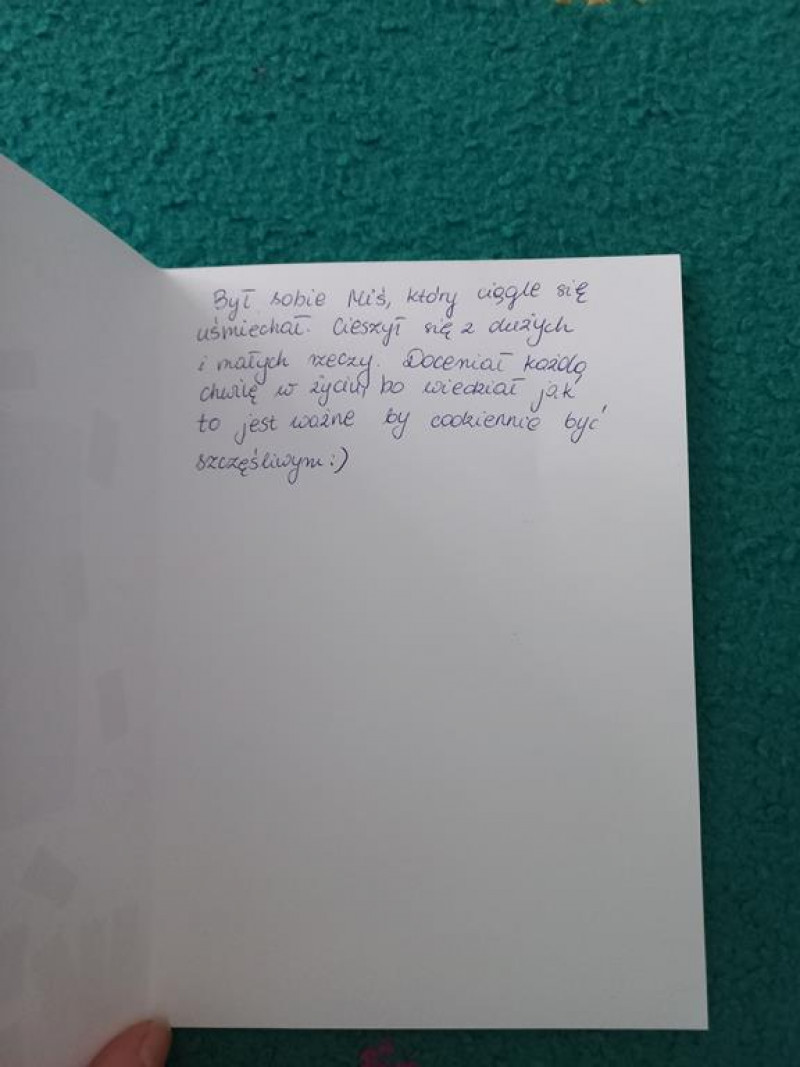 Był sobie Miś, który ciągle się
uśmiechał. Cieszył się z dużych
i małych rzeczy. Doceniał każdą
chwilę w życiu, bo wiedział jak
to jest ważne by codziennie być
szczęśliwym :)